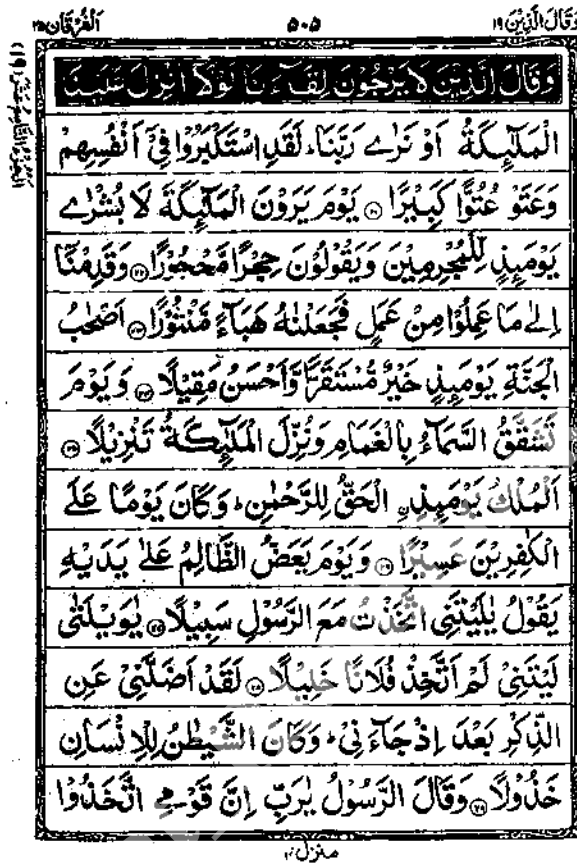 وَقَالَ الَّذِیْنَ ۱۹ ۵۰۵ اَلْفُرْقَان ۲۵
وَقَالَ الَّذِیْنَ لَا یَرْجُوْنَ لِقَآءَنَا لَوْلَاۤ اُنْزِلَ عَلَیْنَا
الْمَلٰٓئِكَةُ اَوْ نَرٰی رَبَّنَا ؕ لَقَدِ اسْتَكْبَرُوْا فِیْۤ اَنْفُسِهِمْ
وَعَتَوْ عُتُوًّا كَبِیْرًا ﴿۲۱﴾ یَوْمَ یَرَوْنَ الْمَلٰٓئِكَةَ لَا بُشْرٰی
یَوْمَىِٕذٍ لِّلْمُجْرِمِیْنَ وَیَقُوْلُوْنَ حِجْرًا مَّحْجُوْرًا ﴿۲۲﴾ وَقَدِمْنَاۤ
اِلٰی مَا عَمِلُوْا مِنْ عَمَلٍ فَجَعَلْنٰهُ هَبَآءً مَّنْثُوْرًا ﴿۲۳﴾ اَصْحٰبُ
الْجَنَّةِ یَوْمَىِٕذٍ خَیْرٌ مُّسْتَقَرًّا وَّاَحْسَنُ مَقِیْلًا ﴿۲۴﴾ وَیَوْمَ
تَشَقَّقُ السَّمَآءُ بِالْغَمَامِ وَنُزِّلَ الْمَلٰٓئِكَةُ تَنْزِیْلًا ﴿۲۵﴾
اَلْمُلْكُ یَوْمَىِٕذِ ࣙالْحَقُّ لِلرَّحْمٰنِ ؕ وَكَانَ یَوْمًا عَلَی
الْكٰفِرِیْنَ عَسِیْرًا ﴿۲۶﴾ وَیَوْمَ یَعَضُّ الظَّالِمُ عَلٰی یَدَیْهِ
یَقُوْلُ یٰلَیْتَنِی اتَّخَذْتُ مَعَ الرَّسُوْلِ سَبِیْلًا ﴿۲۷﴾ یٰوَیْلَتٰی
لَیْتَنِیْ لَمْ اَتَّخِذْ فُلَانًا خَلِیْلًا ﴿۲۸﴾ لَقَدْ اَضَلَّنِیْ عَنِ
الذِّكْرِ بَعْدَ اِذْ جَآءَنِیْ ؕ وَكَانَ الشَّیْطٰنُ لِلْاِنْسَانِ
خَذُوْلًا ﴿۲۹﴾ وَقَالَ الرَّسُوْلُ یٰرَبِّ اِنَّ قَوْمِی اتَّخَذُوْا
منزل ۴